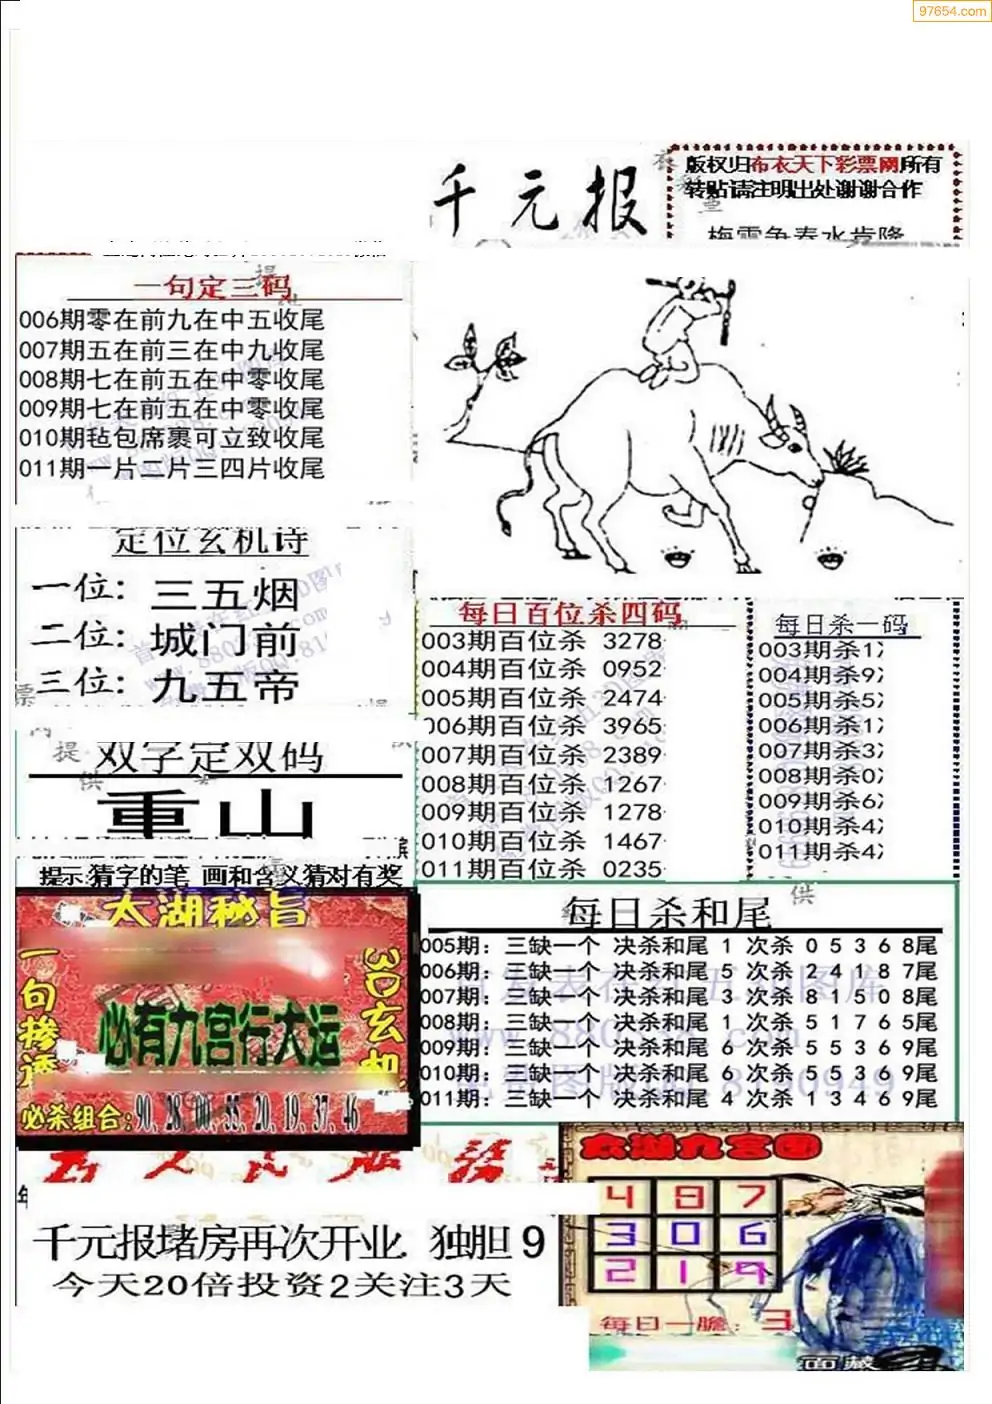 97654.com
千元报
版权归布衣天下彩票网所有
转贴请注明出处谢谢合作
梅雪争春水肯降
一句定三码
006期零在前九在中五收尾
007期五在前三在中九收尾
008期七在前五在中零收尾
009期七在前五在中零收尾
010期毡包席裹可立致收尾
011期一片二片三四片收尾
定位玄机诗
一位：三五烟
二位：城门前
三位：九五帝
双字定双码
重山
提示:猜字的笔 画和含义猜对有奖
每日百位杀四码
003期百位杀 3278
004期百位杀 0952
005期百位杀 2474
006期百位杀 3965
007期百位杀 2389
008期百位杀 1267
009期百位杀 1278
010期百位杀 1467
011期百位杀 0235
每日杀一码
003期杀1
004期杀9
005期杀5
006期杀1
007期杀3
008期杀0
009期杀6
010期杀4
011期杀4
每日杀和尾
005期：三缺一个 决杀和尾 1 次杀 0 5 3 6 8尾
006期：三缺一个 决杀和尾 5 次杀 2 4 1 8 7尾
007期：三缺一个 决杀和尾 3 次杀 8 1 5 0 8尾
008期：三缺一个 决杀和尾 1 次杀 5 1 7 6 5尾
009期：三缺一个 决杀和尾 6 次杀 5 5 3 6 9尾
010期：三缺一个 决杀和尾 6 次杀 5 5 3 6 9尾
011期：三缺一个 决杀和尾 4 次杀 1 3 4 6 9尾
太湖秘旨
一句掺透
3D玄机
必有九宫行大运
必杀组合:90,28,00,55,20,19,37,46
千元报堵房再次开业 独胆 9
今天20倍投资2关注3天
太湖九宫图
4 8 7
3 0 6
2 1 9
每日一胆：3